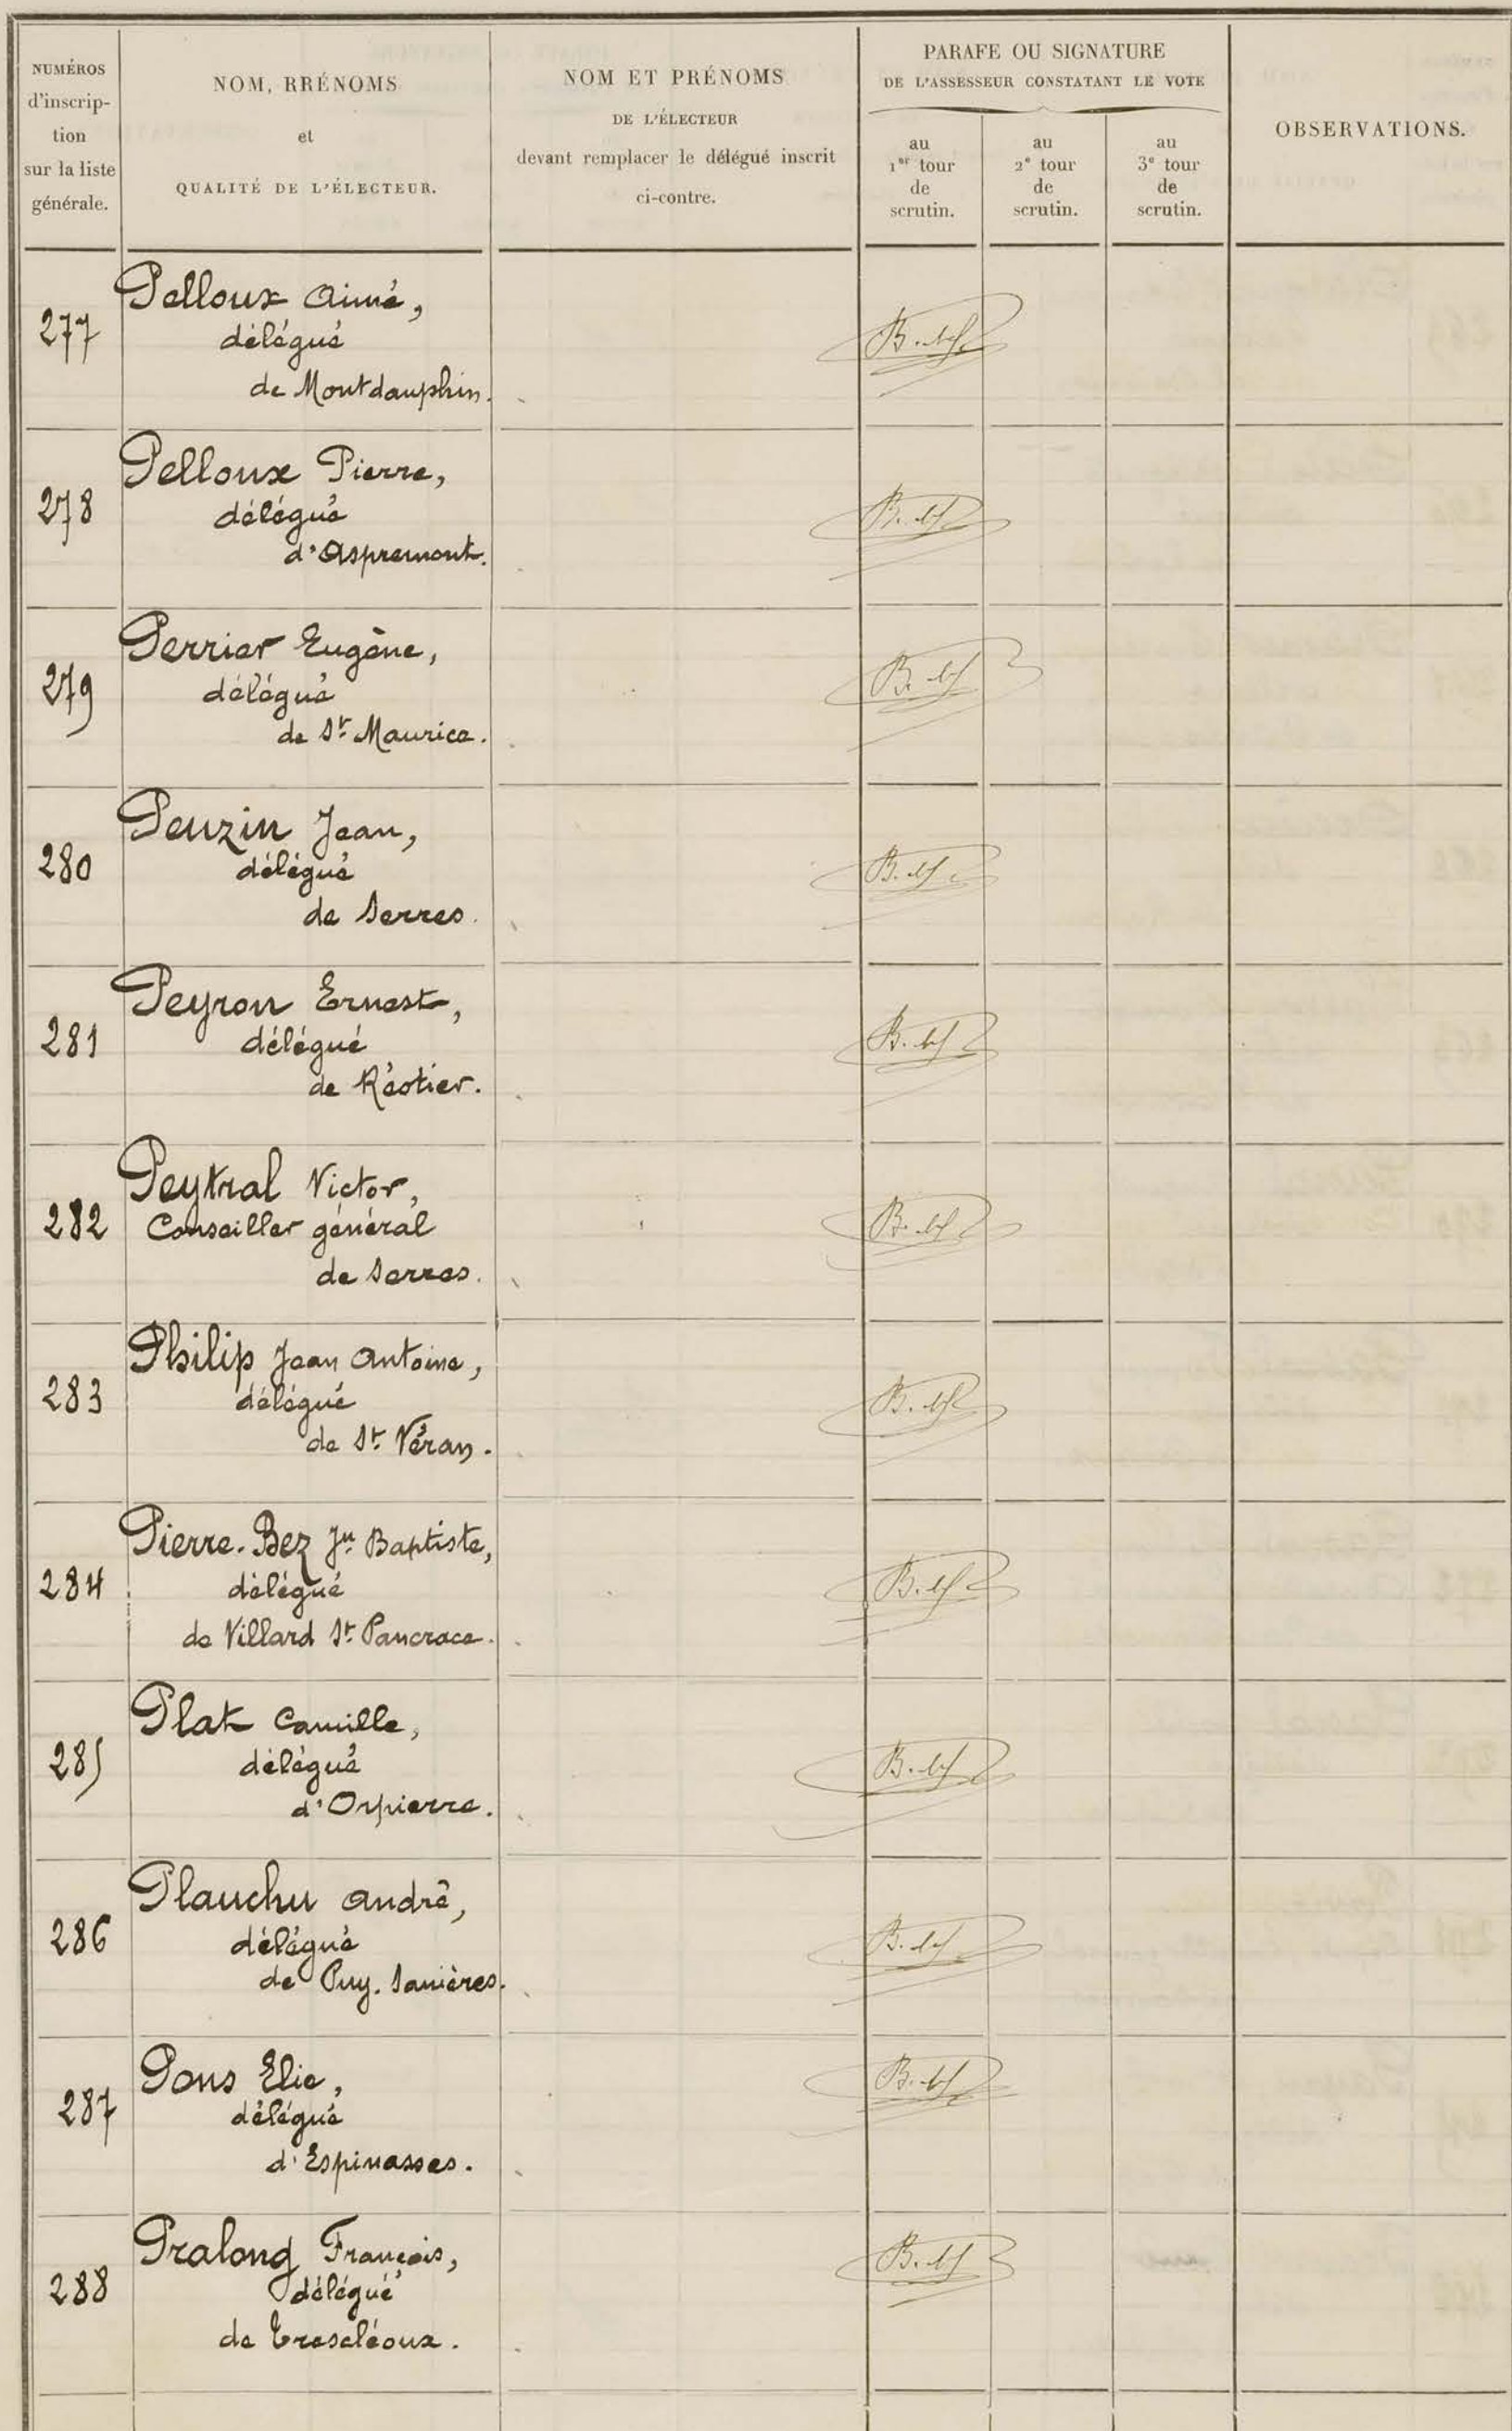 NUMÉROS
d'inscrip-
tion
sur la liste
générale.
NOM, RRÉNOMS
et
QUALITÉ DE L'ÉLECTEUR.
NOM ET PRÉNOMS
DE L'ÉLECTEUR
devant remplacer le délégué inscrit
ci-contre.
PARAFE OU SIGNATURE
DE L'ASSESSEUR CONSTATANT LE VOTE
au
1er tour
de
scrutin.
au
2e tour
de
scrutin.
au
3e tour
de
scrutin.
OBSERVATIONS.
277
Pelloux Aimé,
délégué
de Montdauphin.
278
Pelloux Pierre,
délégué
d'Aspremont.
279
Perrier Eugène,
délégué
de St Maurice.
280
Peuzin Jean,
délégué
de Serres.
281
Peyron Ernest,
délégué
de Réotier.
282
Peytral Victor,
Conseiller général
de Serres.
283
Philip Jean Antoine,
délégué
de St Véran.
284
Pierre-Bez Jn Baptiste,
délégué
de Villard St Pancrace.
285
Plat Camille,
délégué
d'Orpierre.
286
Plauchu André,
délégué
de Puy-Sanières.
287
Pons Elie,
délégué
d'Espinasses.
288
Pralong François,
délégué
de Trescléoux.